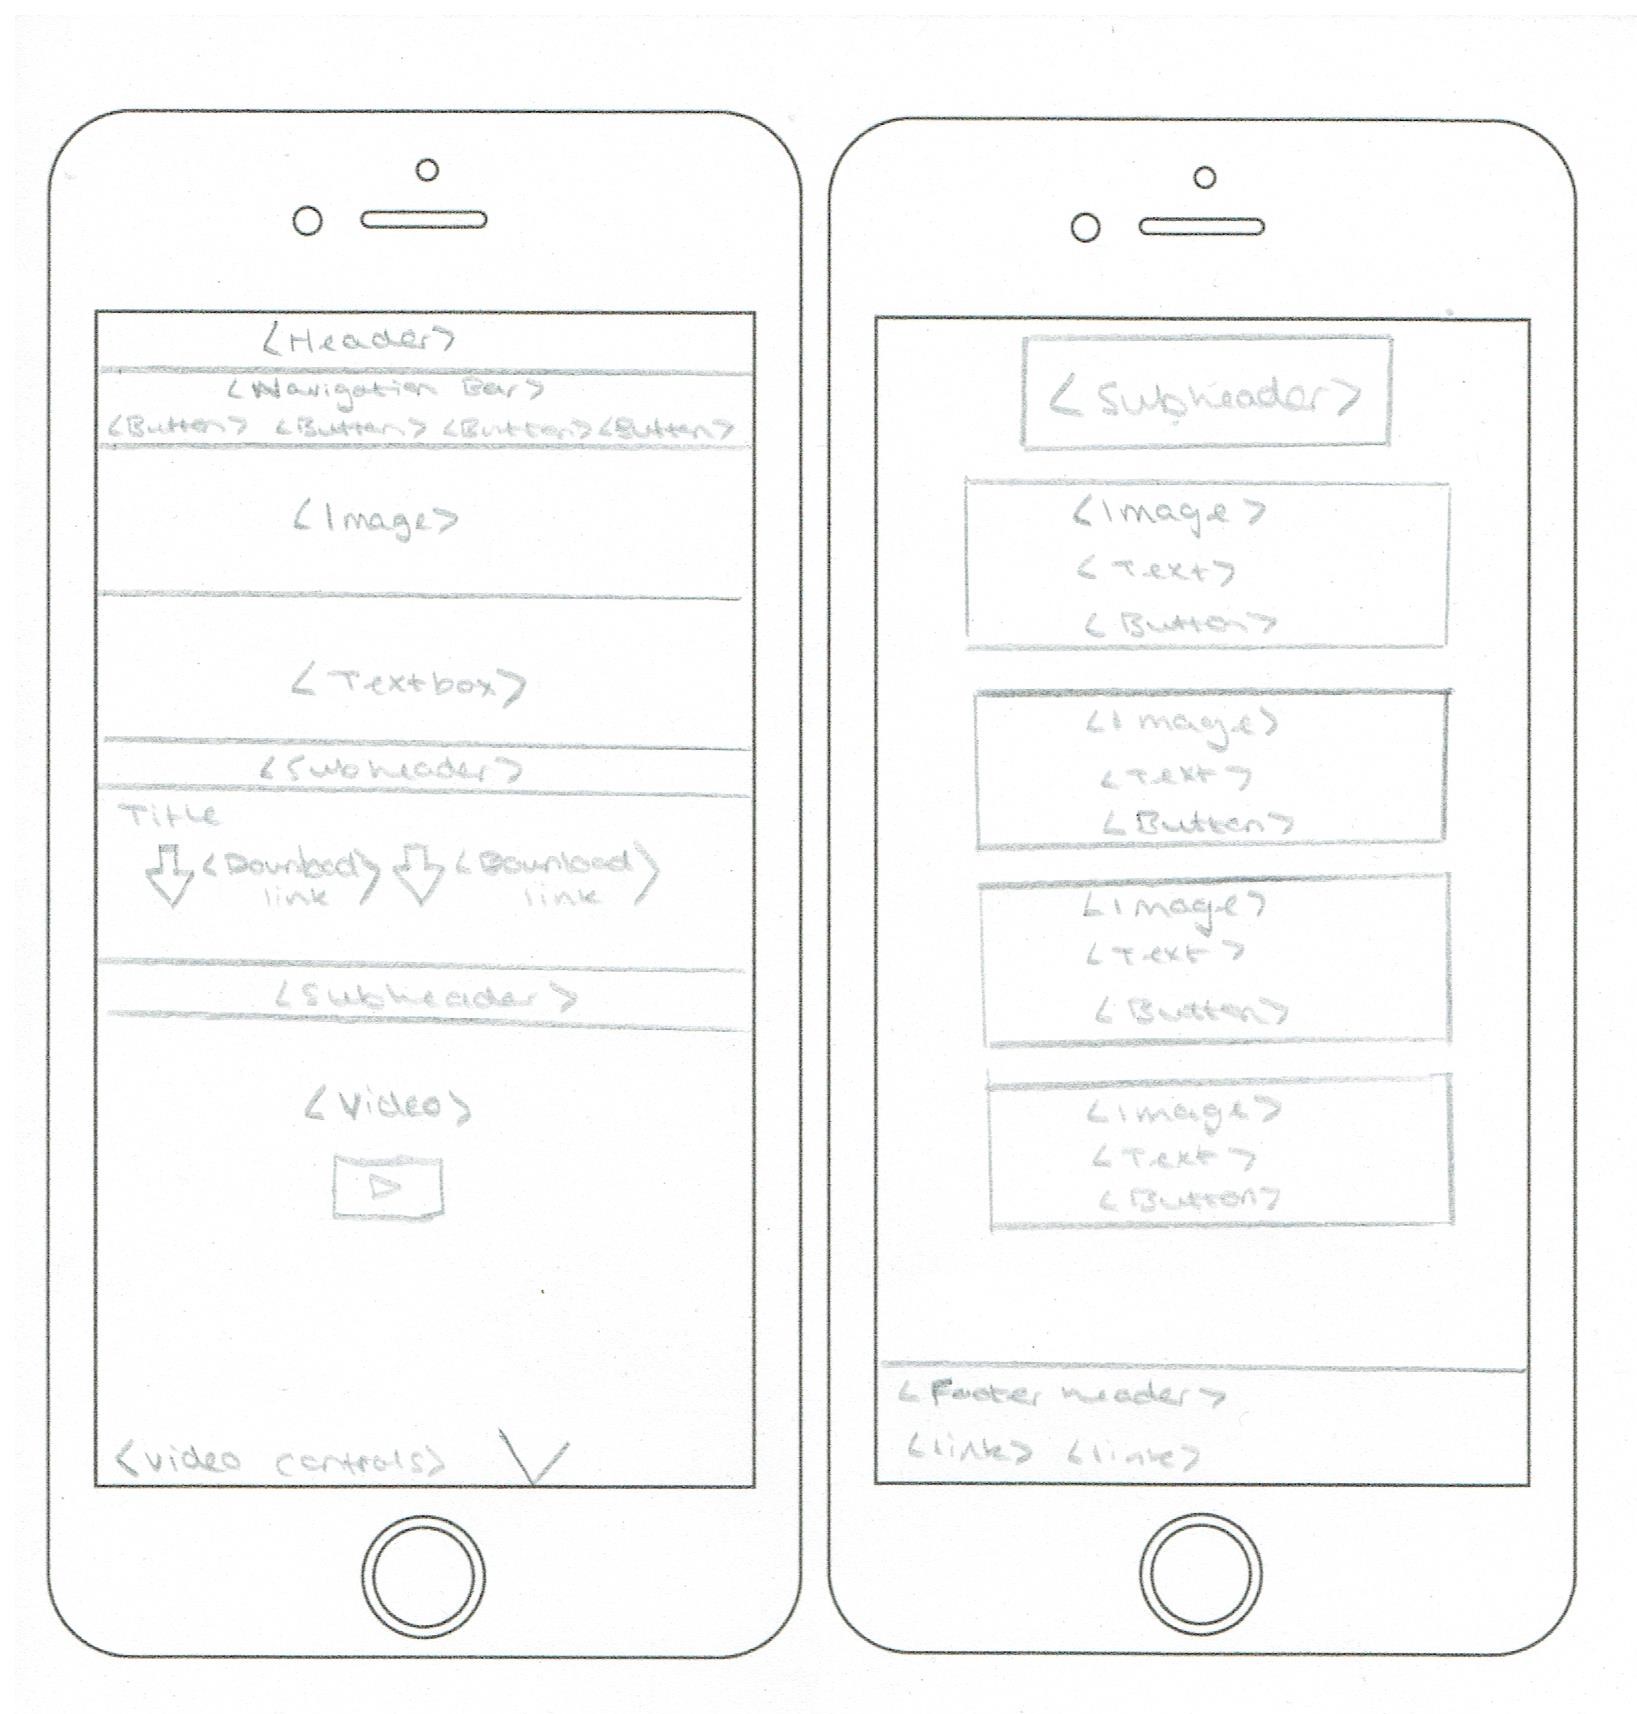 <Header>
<Navigation Bar>
<Button> <Button> <Button> <Button>
<Image>
<Textbox>
<Subheader>
Title
<Download link> <Download link>
<Subheader>
<Video>
<video controls>
<Subheader>
<Image>
<Text>
<Button>
<Image>
<Text>
<Button>
<Image>
<Text>
<Button>
<Image>
<Text>
<Button>
<Footer header>
<link> <link>